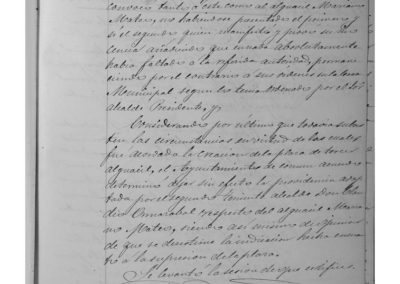 convocó tanto á este como al alguacil Mariano
Mateo, no habiéndose presentado el primero y
si el segundo quien manifestó
añadiendo que en nada absolutamente
había faltado á la referida autoridad, permane
ciendo por el contrario a sus ordenes en la Casa
Municipal segun les tenia ordenado por el Sor
Alcalde Presidente, y;
Considerando por ultimo que todavia subsis
ten las circunstancias en virtud de las cuales
fue acordada la creacion de la plaza de tercer
alguacil, el Ayuntamiento de comun acuerdo
determinó dejar sin efecto la providencia adop
tada por el segundo teniente alcalde Don
respecto del alguacil Maria
no Mateo, siendo así mismo de opinion
de que se desestime la indicacion hecha en cuan
to á la supresion de la plaza.
Se levantó la sesion de que certifico.